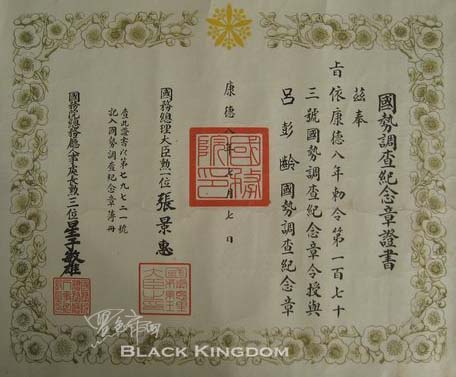 國勢調查紀念章證書
茲奉
旨依康德八年勅令第一百七十
三號國勢調查紀念章令授與
呂彭齡國勢調查紀念章
康德八年七月七日
國務總理大臣勲一位張景惠
查此證書以第七九七二一號
記入國勢調查紀念章簿冊
國務院總務廳人事處長勲三位星子敏雄
國務院印
BLACK KINGDOM